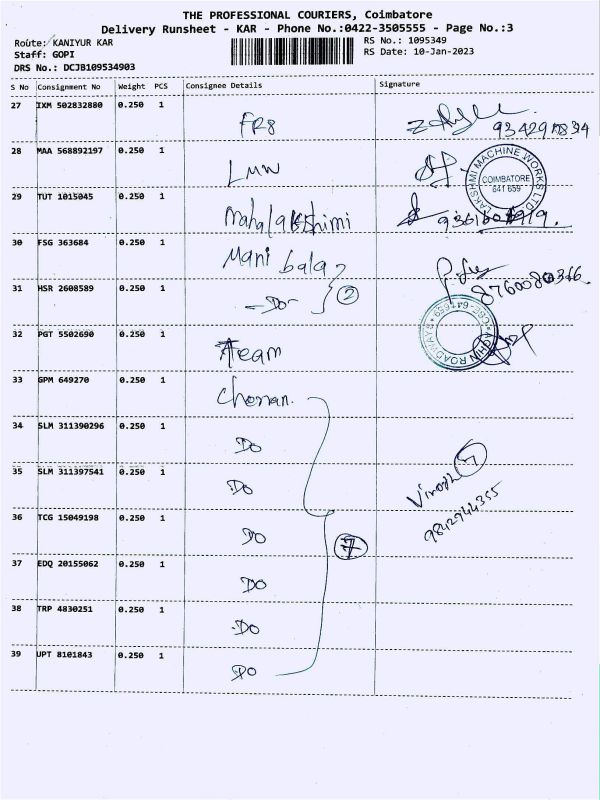 THE PROFESSIONAL COURIERS, Coimbatore
Delivery Runsheet - KAR - Phone No.:0422-3505555 - Page No.:3
Route: KANIYUR KAR
RS No.: 1095349
Staff: GOPI
RS Date: 10-Jan-2023
DRS No.: DCJB109534903
S No Consignment No Weight PCS Consignee Details Signature
27 IXM 502832880 0.250 1 FR8
28 MAA 568892197 0.250 1 LMW
LAKSHMI MACHINE WORKS LTD
COIMBATORE
641 659
29 TUT 1015045 0.250 1 Mahalakshimi
30 FSG 363684 0.250 1 Mani bala
31 HSR 2608589 0.250 1 -Do- 2
8760080366
32 PGT 5502690 0.250 1 Team
ROADWAYS
33 GPM 649270 0.250 1 Cheran.
34 SLM 311390296 0.250 1 Do
35 SLM 311397541 0.250 1 Do
7
9842944355
36 TCG 15049198 0.250 1 Do
7
37 EDQ 20155062 0.250 1 Do
38 TRP 4830251 0.250 1 Do
39 UPT 8101843 0.250 1 Do